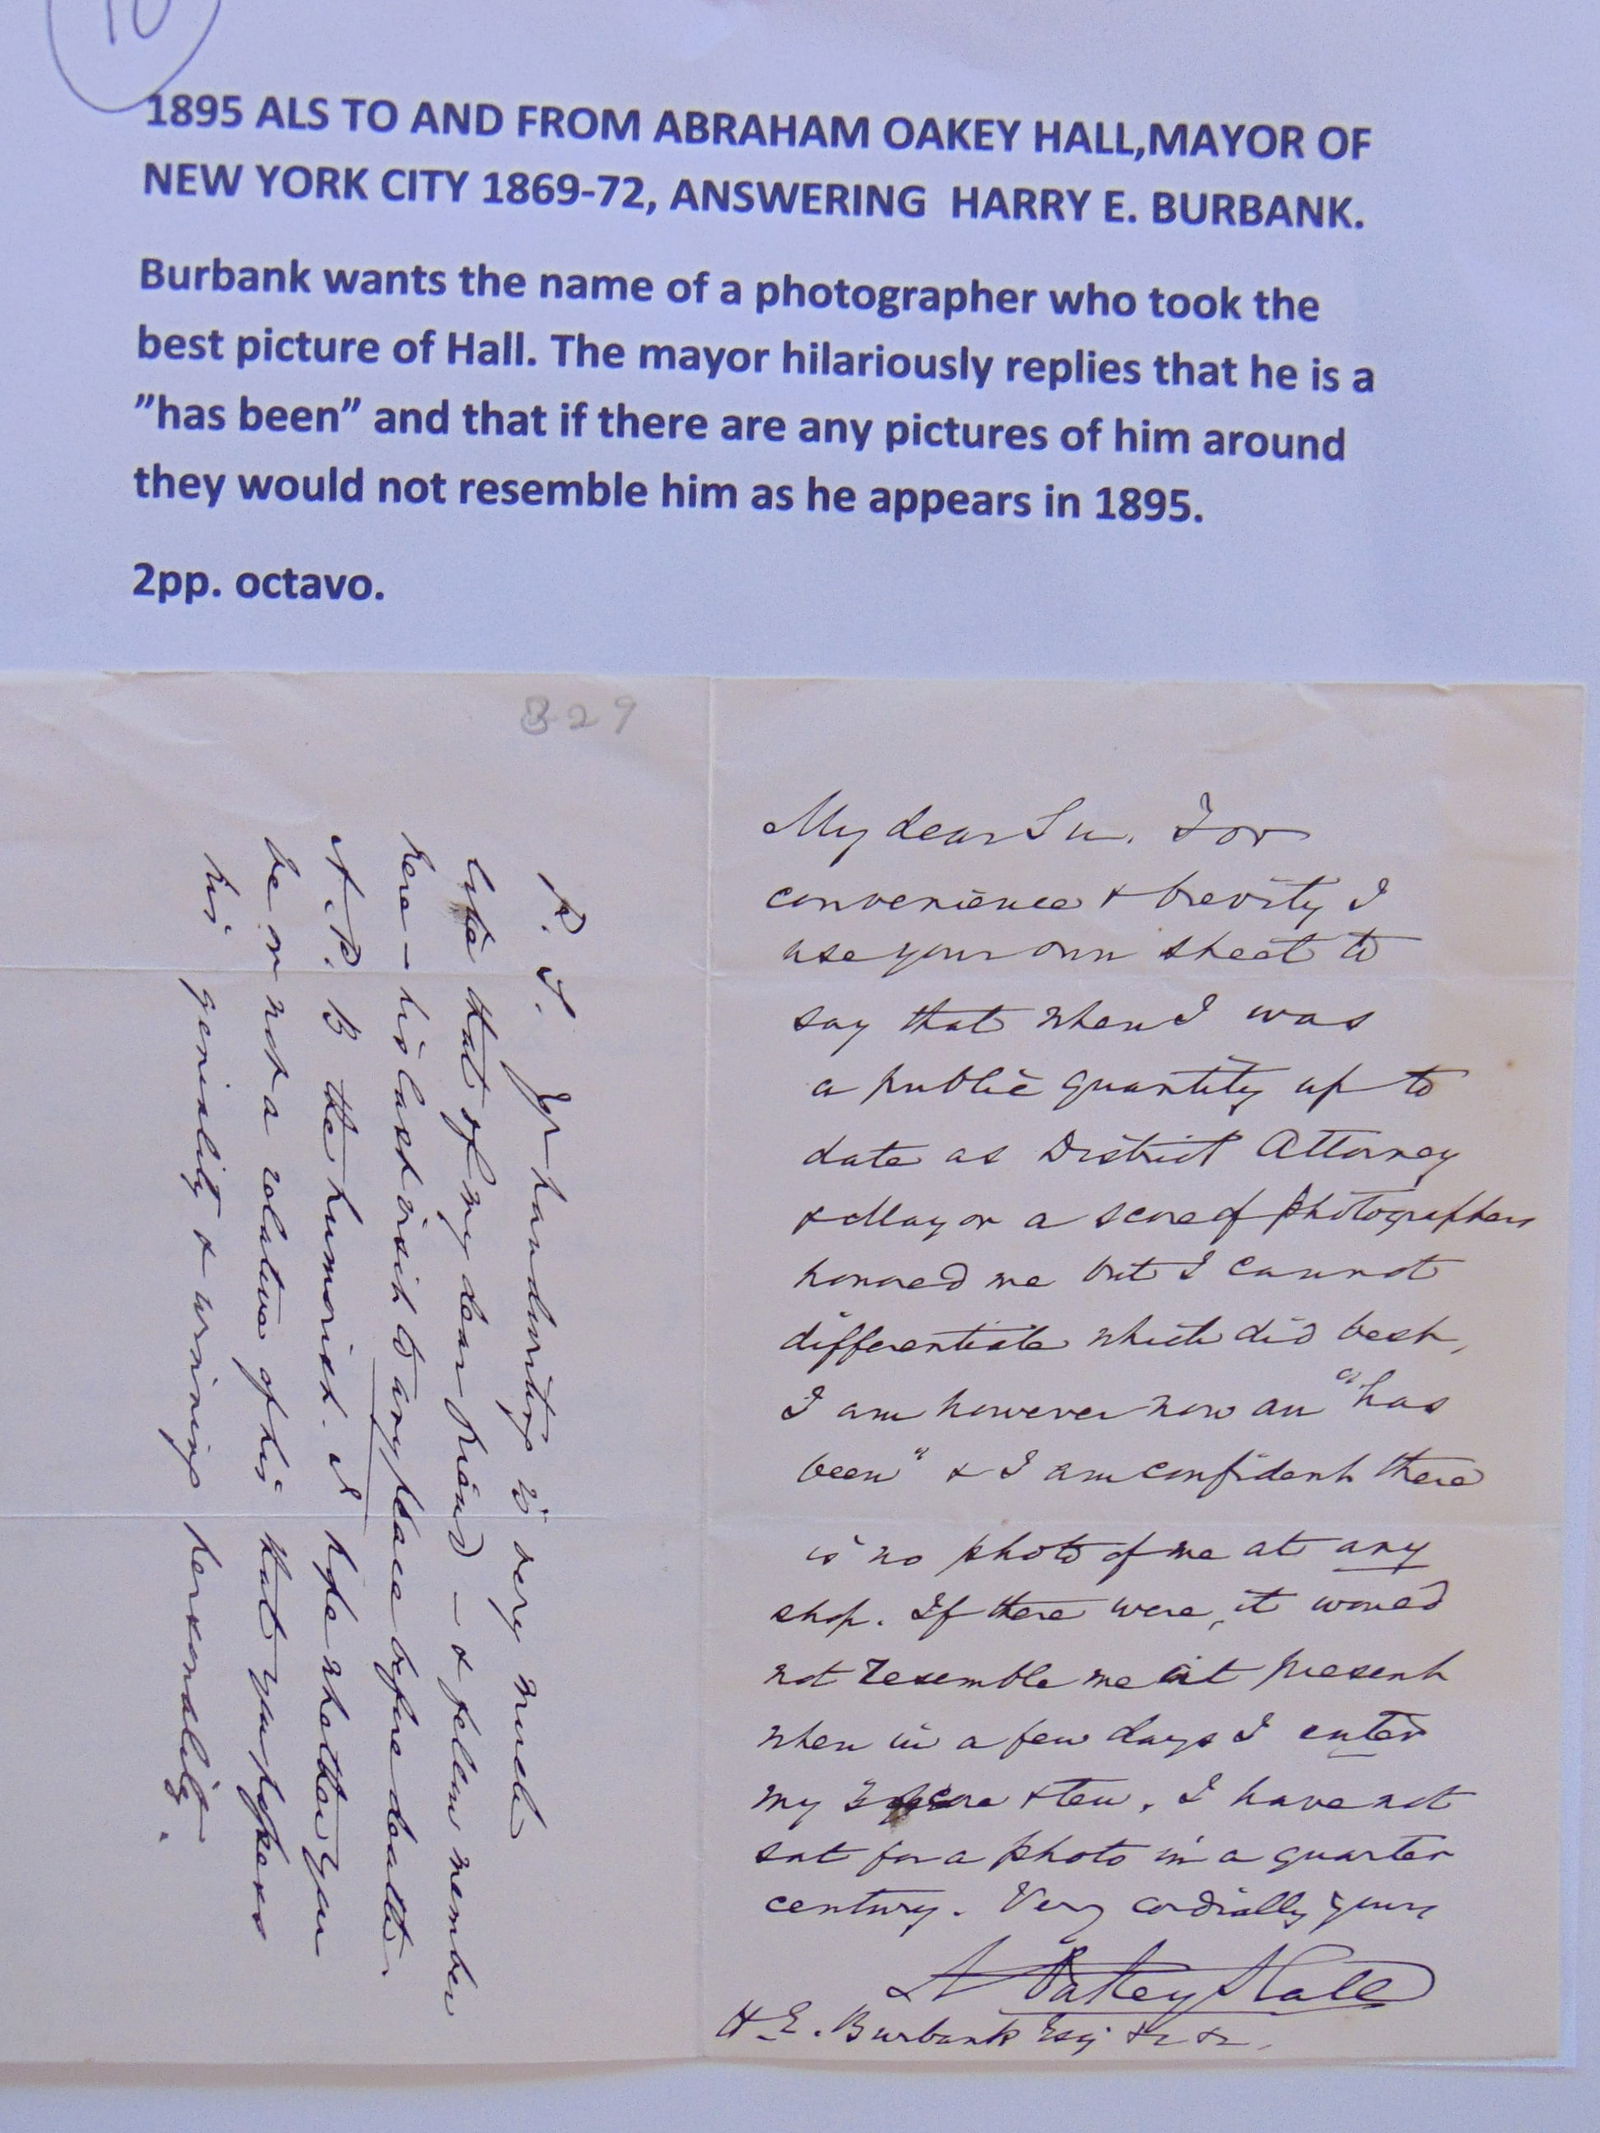 10
1895 ALS TO AND FROM ABRAHAM OAKEY HALL,MAYOR OF
NEW YORK CITY 1869-72, ANSWERING HARRY E. BURBANK.
Burbank wants the name of a photographer who took the
best picture of Hall. The mayor hilariously replies that he is a
”has been” and that if there are any pictures of him around
they would not resemble him as he appears in 1895.
2pp. octavo.
829
My dear Sir. For
convenience & brevity I
use your own sheet to
say that when I was
a public quantity up to
date as District Attorney
& Mayor a score of photographers
honored me but I cannot
differentiate which did best.
I am however now an "has
been" & I am confident there
is no photo of me at any
shop. If there were, it would
not resemble me at present
when in a few days I enter
my 3 score & ten. I have not
sat for a photo in a quarter
century. Very cordially yours
A Oakey Hall
H. E. Burbank Esq &c &c.
P. S. Yr handwriting is very much
like that of my dear friend — & fellow member
here — his last visit to any place before death —
of P. B the humorist. I hope whether you
be or not a relative of his that you possess
his geniality & winning personality.